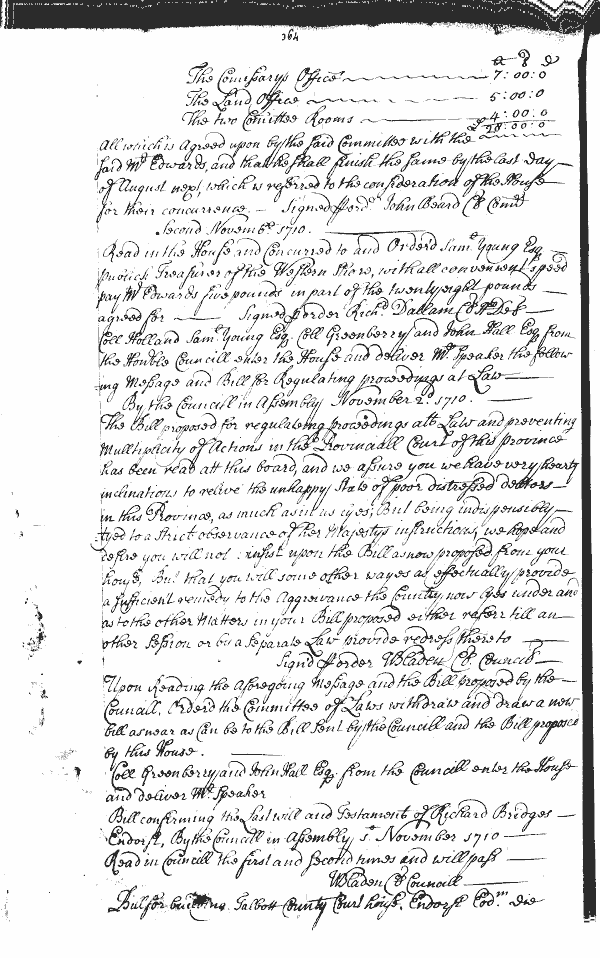 364
£ s d
The Comissarys Office 7:00:0
The Land Office 5:00:0
The two Comittee Rooms 4:00:0
£28:00:0
All which is Agreed upon by the said Committee with the
said Mr Edwards, and that he shall finish the same by the last day
of August next, which is referred to the consideration of the House
for their concurrence. — Signed p ord.r John Beard Cl Comtt
Second Novemb.r 1710.
Read in the House and Concurred to and Orderd Sam.ll Young Esq
publick Treasurer of the Western Shore, with all convenient speed
pay Mr Edwards five pounds in part of the twenty eight pounds
agreed for — Signed p order Richd Dallam Cl
Coll Holland Sam.ll Young Esq. Coll Greenberry and John Hall Esq from
the Honble Councill enter the House and deliver Mr Speaker the follow
ing Message and Bill for Regulating proceedings at Law
By the Councill in Assembly November 2d 1710.
The Bill proposed for regulateing proceedings att Law and preventing
Multiplicity of Actions in the Provinciall Court of this province
has been read att this board, and we assure you we have very hearty
inclinations to relive the unhappy State of poor distressed debtors
in this Province, as much as in us lyes, But being indispensibly
tyed to a Strict observance of her Majestys instructions, we hope and
desire you will not insist upon the Bill as now proposed from your
house, But that you will some other wayes as effectually provide
a sufficient remedy to the Aggreivance the Country now lyes under and
as to the other Matters in your Bill proposed either referr till an
other Session or by a Separate Law provide redress thereto
Signd p order W Bladen Cl. Councill
Upon Reading the Aforegoing Message and the Bill proposed by the
Councill. Orderd the Committee of Laws withdraw and draw a new
bill as near as Can be to the Bill Sent by the Councill and the Bill proposed
by this House.
Coll Greenberry and John Hall Esq. from the Councill enter the House
and deliver Mr Speaker
Bill confirming the Last will and Testament of Richard Bridges
Endorst, By the Councill in Assembly 1st November 1710
Read in Councill the first and Second times and will pass
W Bladen Cl Councill
Bill for building Talbott County Court house. Endorst Eod.m Die